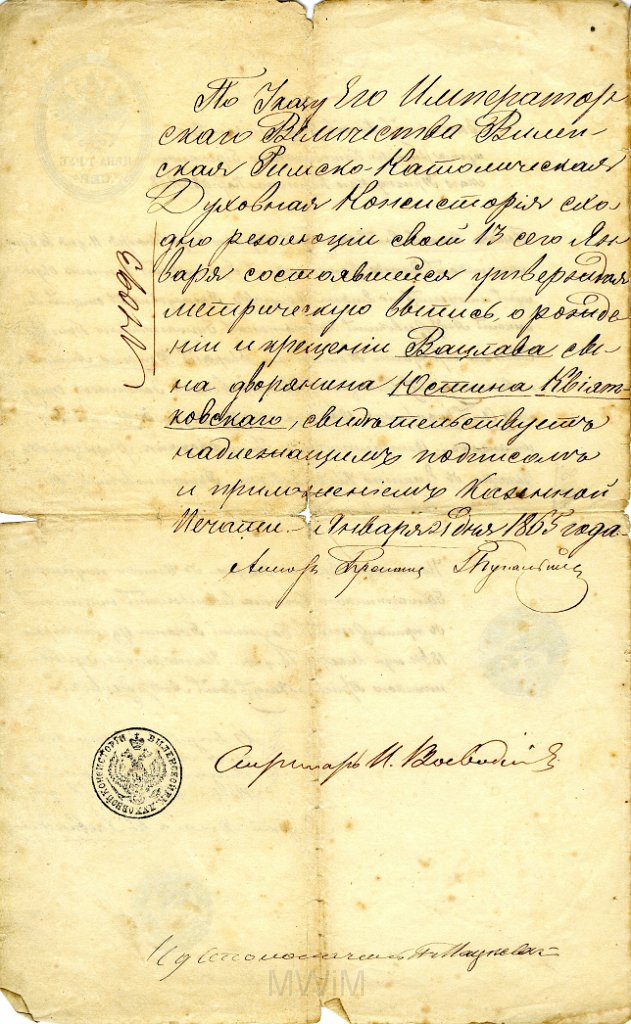 По Указу Его Император-
скаго Величества Вилен-
ская Римско-Католическая
Духовная Консисторія схо-
дно резолюціи своей 13 сего Ян-
варя состоявшейся утверждая
метрическую выпись о рожде-
ніи и крещеніи Вацлава сы-
на дворянина Юстина Квіят-
ковскаго, свидѣтельствуетъ
надлежащимъ подписомъ
и приложеніемъ Казенной
Печати. Января 21 дня 1865 года.
№
Ассесоръ
ВИЛЕНСКОЙ Р. К. ДУХОВНОЙ КОНСИСТОРІИ
Секретарь И.
Столоначальникъ
MWiM